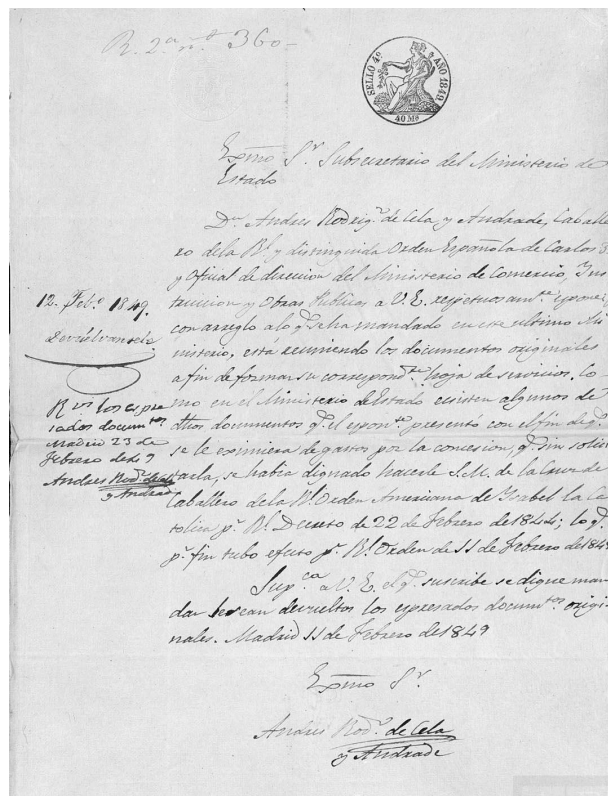 R. 2ª nº 360-
SELLO 4º AÑO 1849.
40 Ms
Exmo Sr. Subsecretario del Ministerio de
Estado
Dn. Andres Rodrigz. de Cela y Andrade, Caballe
ro de la Rl. y distinguida Orden Española de Carlos 3º
y Oficial de direccion del Ministerio de Comercio, Ins
truccion y Obras Publicas a V.E. respetuosamte. espone:
con arreglo a lo q. se ha mandado en este ultimo Mi
nisterio, está reuniendo los documentos originales
a fin de formar su correspondte. hoja de servicios. Co
mo en el Ministerio de Estado ecsisten algunos de
dhos documentos q. el esponte. presentó con el fin de q.
se le eximiera de gastos por la concesion, q. sin solici
tarla, se habia dignado hacerle S.M. de la Cruz de
Caballero de la Rl. Orden Americana de Ysabel la Ca
tolica pr. Rl. Decreto de 22 de Febrero de 1844; lo q.
pr. fin tubo efecto pr. Rl. Orden de 11 de Febrero de 1845
Supca. a V.E. el q. suscribe se digne man
dar le sean devueltos los espresados documtos. origi
nales. Madrid 11 de Febrero de 1849
Exmo Sr.
Andres Rodz. de Cela
y Andrade
12. Febo. 1849.
Devuélvansele
los espre
sados documtos.
Madrid 23 de
Febrero de
Andres Rodz. de Cela
y Andrade